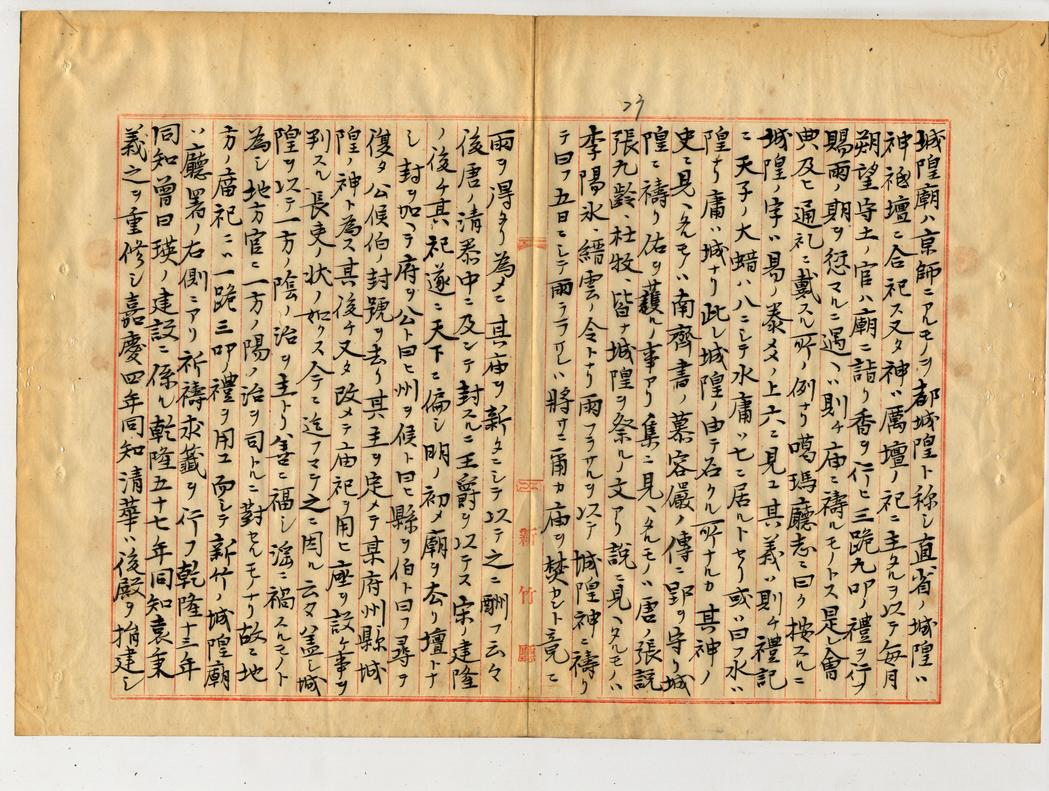 23
城隍廟ハ京師ニアルモノヲ都城隍ト称シ直省ノ城隍ハ
神祗壇ニ合祀ス又タ神ハ厲壇ノ祀ニ主タルヲ以テ毎月
朔望守土官ハ廟ニ詣リ香ヲ行ヒ三跪九叩ノ禮ヲ行フ
賜雨ノ期ヲ愆マルニ遇ヘハ則チ庙ニ禱ルモノトス是レ會
典及ヒ通礼ニ戴スル所ノ例ナリ噶瑪廳志ニ曰ク按スルニ
城隍ノ字ハ易ノ泰爻ノ上六ニ見エ其義ハ則チ禮記
ニ天子ノ大蜡ハ八ニシテ水庸ハ七ニ居ルトセリ或ハ曰フ水ハ
隍ナリ庸ハ城ナリ此レ城隍ノ由テ名クル所ナルカ其神ノ
史ニ見ヘタルモノハ南齊書ノ慕容儼ノ傳ニ郢ヲ守リ城
隍ニ禱リ佑ヲ護ルノ事アリ集ニ見ヘタルモノハ唐ノ張説
張九齡、杜牧皆ナ城隍ヲ祭ルノ文アリ説ニ見ヘタルモノハ
李陽氷、縉雲ノ令トナリ雨フラサルヲ以テ城隍神ニ禱リ
テ曰フ五日ニシテ雨フラサレハ將サニ爾カ庙ヲ焚カント竟ニ
新竹廳
雨ヲ得タリ為メニ其庙ヲ新タニシテ以テ之ニ酬フ云々
後唐ノ清泰中ニ及ンテ封スルニ王爵ヲ以テス宋ノ建隆
ノ後チ其祀遂ニ天下ニ偏シ明ノ初メ廟ヲ去リ壇トナ
シ封ヲ加ヘテ府ヲ公ト曰ヒ州ヲ候ト曰ヒ縣ヲ伯ト曰フ尋テ
復タ公候伯ノ封號ヲ去リ其主ヲ定メテ某府州縣城
隍ノ神ト為ス其後チ又タ改メテ庙祀ヲ用ヒ座ヲ設ケ事ヲ
判スル長吏ノ状ノ如クス今ニ迄フマテ之ニ因ル云々盖シ城
隍ヲ以テ一方ノ陰ノ治ヲ主トリ善ニ福シ淫ニ禍スルモノト
為シ地方官ニ一方ノ陽ノ治ヲ司トルニ對セルモノナリ故ニ地
方ノ庙祀ニハ一跪三叩禮ヲ用ユ而シテ新竹ノ城隍廟
ハ廳署ノ右側ニアリ祈禱求籤ヲ行フ乾隆十三年
同知曾曰瑛ノ建設ニ係ル乾隆五十七年同知袁秉
義之ヲ重修シ嘉慶四年同知清華ハ後殿ヲ捐建シ